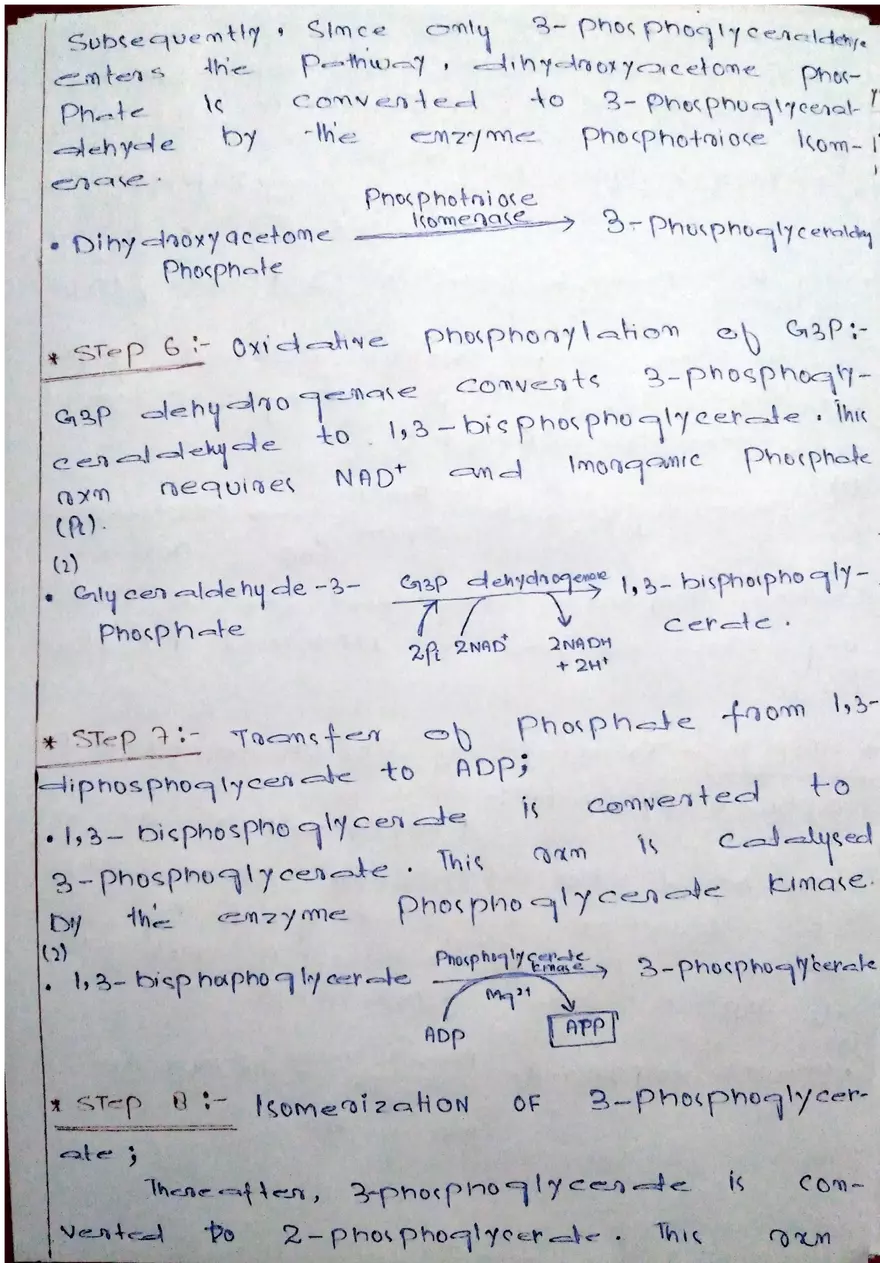 Subsequently, Since only 3-phosphoglyceraldehye
enters the Pathway, dihydroxyacetone phos-
phate is converted to 3-phosphoglyceral-
dehyde by the enzyme phosphotriose Isom-
erase.
Phosphotriose
Isomerase
• Dihydroxyacetone → 3-Phosphoglyceraldhy
Phosphate
* STEP 6:- Oxidative phosphorylation of G3P:-
G3P dehydrogenase converts 3-phosphogly-
ceraldehyde to 1,3-bisphosphoglycerate. This
rxn requires NAD⁺ and Inorganic Phosphate
(Pi).
(2)
• Glyceraldehyde-3- G3P dehydrogenase → 1,3-bisphosphogly-
Phosphate cerate.
2Pi 2NAD⁺ 2NADH
+ 2H⁺
* STEP 7:- Transfer of Phosphate from 1,3-
diphosphoglycerate to ADP;
• 1,3-bisphosphoglycerate is converted to
3-phosphoglycerate. This rxn is catalysed
by the enzyme phosphoglycerate kinase.
(2)
Phosphoglycerate
kinase
• 1,3-bisphosphoglycerate → 3-phosphoglycerate
Mg²⁺
ADP ATP
* STEP 8:- Isomerization OF 3-phosphoglycer-
ate;
Thereafter, 3-phosphoglycerate is con-
verted to 2-phosphoglycerate. This rxn